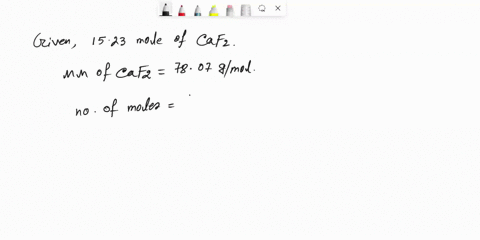 Given, 15.23 mole of CaF2.
MM of CaF2 = 78.07 g/mol.
no. of moles =